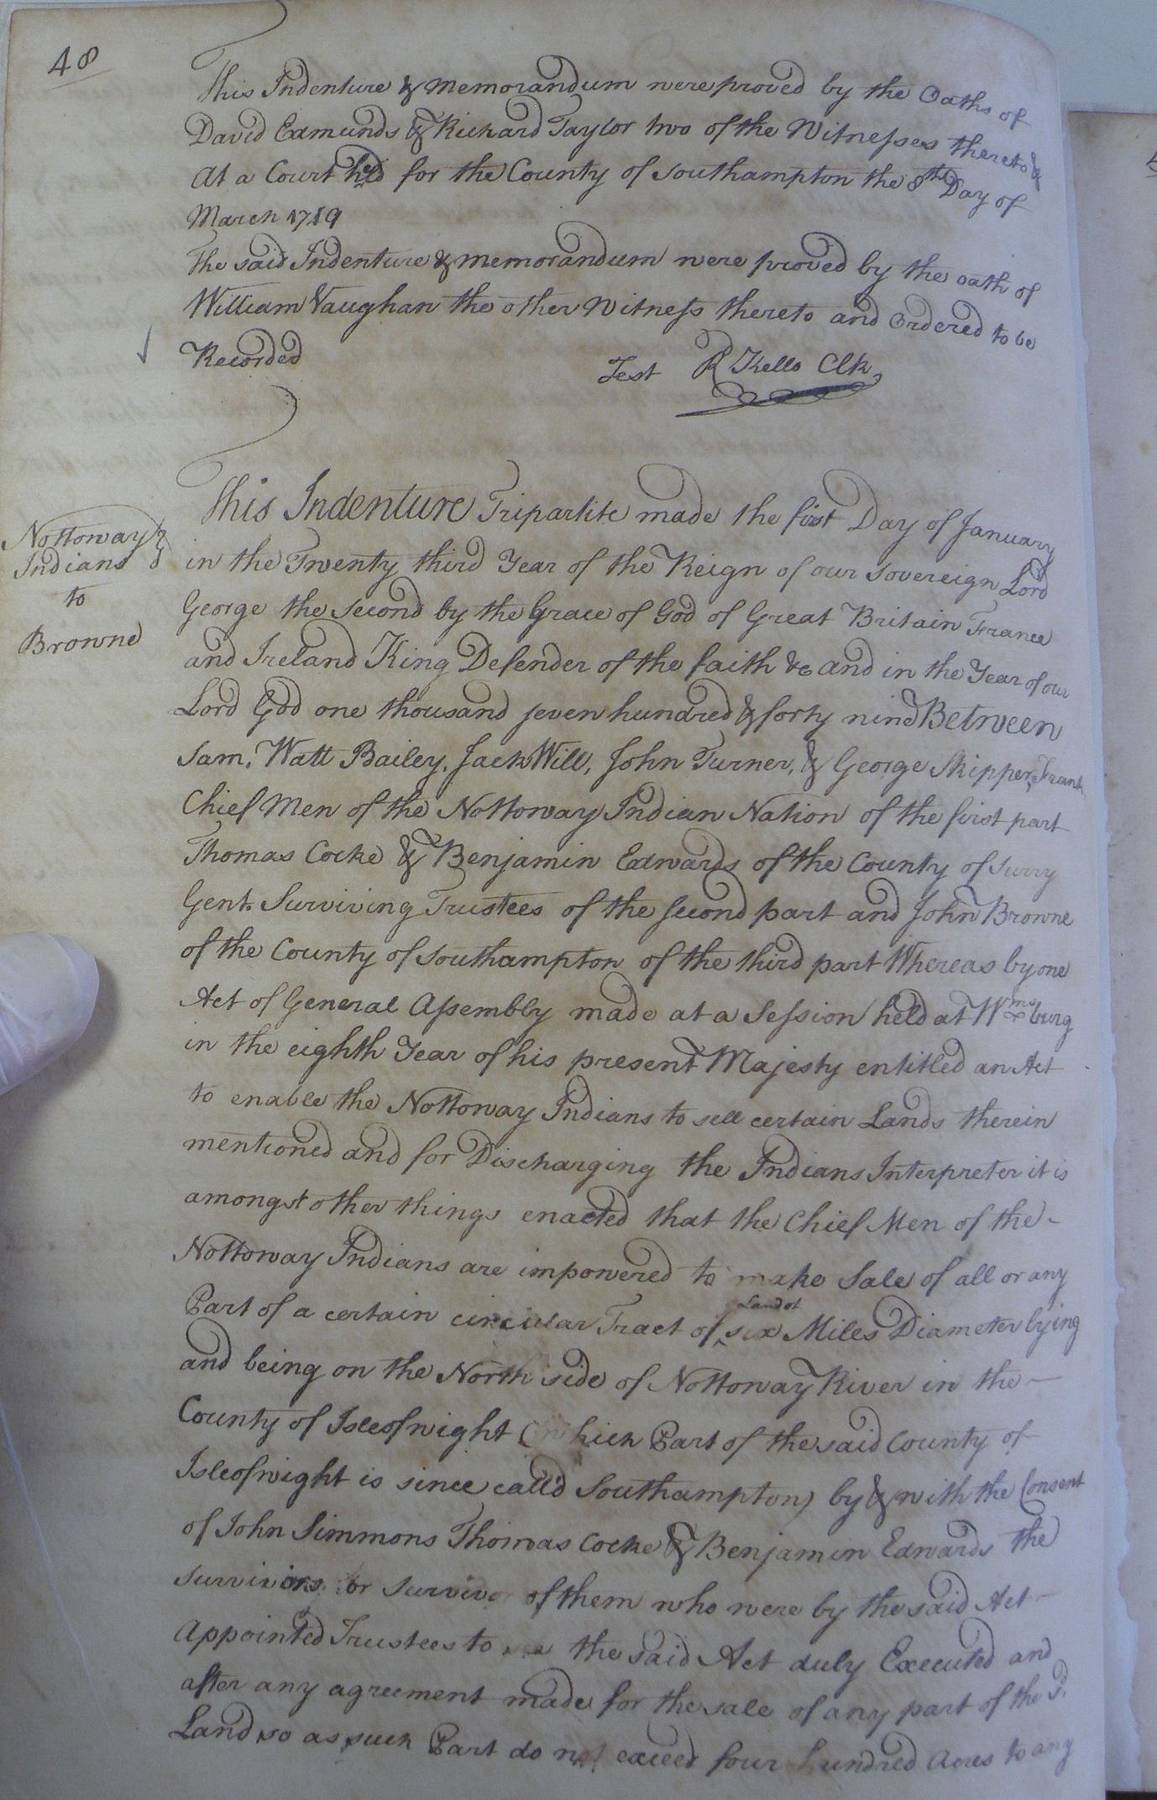 48
This Indenture & Memorandum were proved by the Oaths of
David Edmunds & Richard Taylor two of the Witnesses thereto &
At a Court held for the County of Southampton the 8th Day of
March 1749
The said Indenture & memorandum were proved by the oath of
William Vaughan the other Witness thereto and Ordered to be
Recorded
Test R Kello Clk
Nottoway
Indians
to
Browne
This Indenture Tripartite made the first Day of January
in the Twenty third Year of the Reign of our Sovereign Lord
George the Second by the Grace of God of Great Britain France
and Ireland King Defender of the faith &c and in the Year of our
Lord God one thousand seven hundred & forty nine Between
Sam, Watt Bailey, Jack Will, John Turner, & George Skipper, Frank
Chief Men of the Nottoway Indian Nation of the first part
Thomas Cocke & Benjamin Edwards of the County of Surry
Gent. Surviving Trustees of the second part and John Browne
of the County of Southampton of the third part Whereas by one
Act of General Assembly made at a Session held at Wmsburg
in the eighth Year of his present Majesty entitled an Act
to enable the Nottoway Indians to sell certain Lands therein
mentioned and for Discharging the Indians Interpreter it is
amongst other things enacted that the Chief Men of the-
Nottoway Indians are impowered to make Sale of all or any
Part of a certain circular Tract of Land of six Miles Diameter lying
and being on the North side of Nottoway River in the-
County of Isleofwight (which Part of the said County of
Isleofwight is since call'd Southampton) by & with the Consent
of John Simmons Thomas Cocke & Benjamin Edwards the
survivors or survivor of them who were by the said Act-
Appointed Trustees to the said Act duly Executed and
after any agreement made for the sale of any part of the sd.
Land so as such Part do not exceed four hundred Acres to any